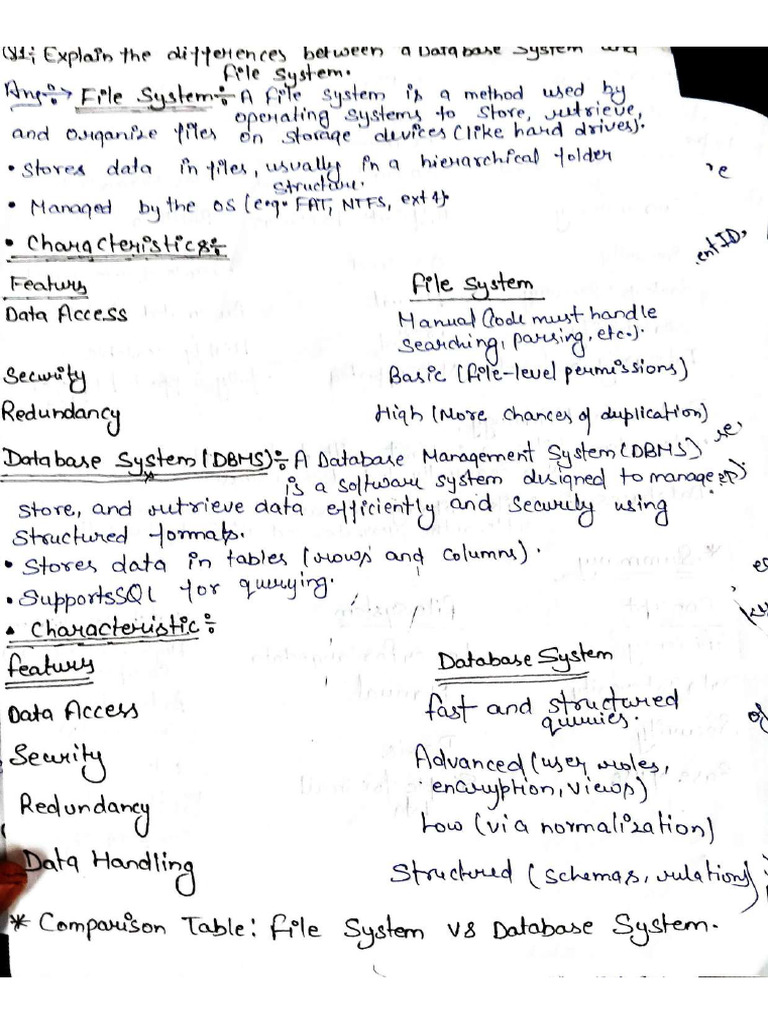 Q1: Explain the differences between a Database System and
File System.
Ans:→ File System:- A file system is a method used by
operating systems to store, retrieve,
and organize files on storage devices (like hard drives).
• Stores data in files, usually in a hierarchical folder
structure.
• Managed by the OS (e.g. FAT, NTFS, ext4).
• Characteristics:-
Features File System
Data Access Manual Code must handle
searching, parsing, etc.).
Security Basic (file-level permissions)
Redundancy High (More chances of duplication)
Database System (DBMS):- A Database Management System (DBMS)
is a software system designed to manage,
store, and retrieve data efficiently and securely using
structured formats.
• Stores data in tables (rows and columns).
• Supports SQL for querying.
• Characteristic:-
Features Database System
Data Access Fast and structured
queries.
Security Advanced (user roles,
encryption, views)
Redundancy Low (via normalization)
Data Handling Structured (schemas, relations)
* Comparison Table: File System vs Database System.